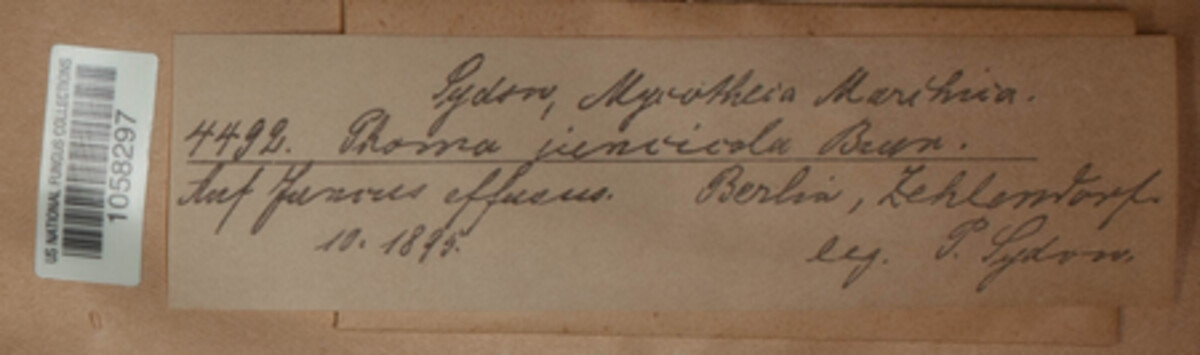 US NATIONAL FUNGUS COLLECTIONS
1058297
Sydow, Mycotheca Marchica.
4492. Phoma juncicola Brun.
Auf Juncus effusus. Berlin, Zehlendorf.
10. 1895. leg. P. Sydow.